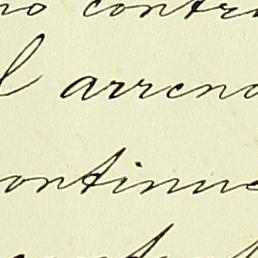 no contr
l arrend
ontinue